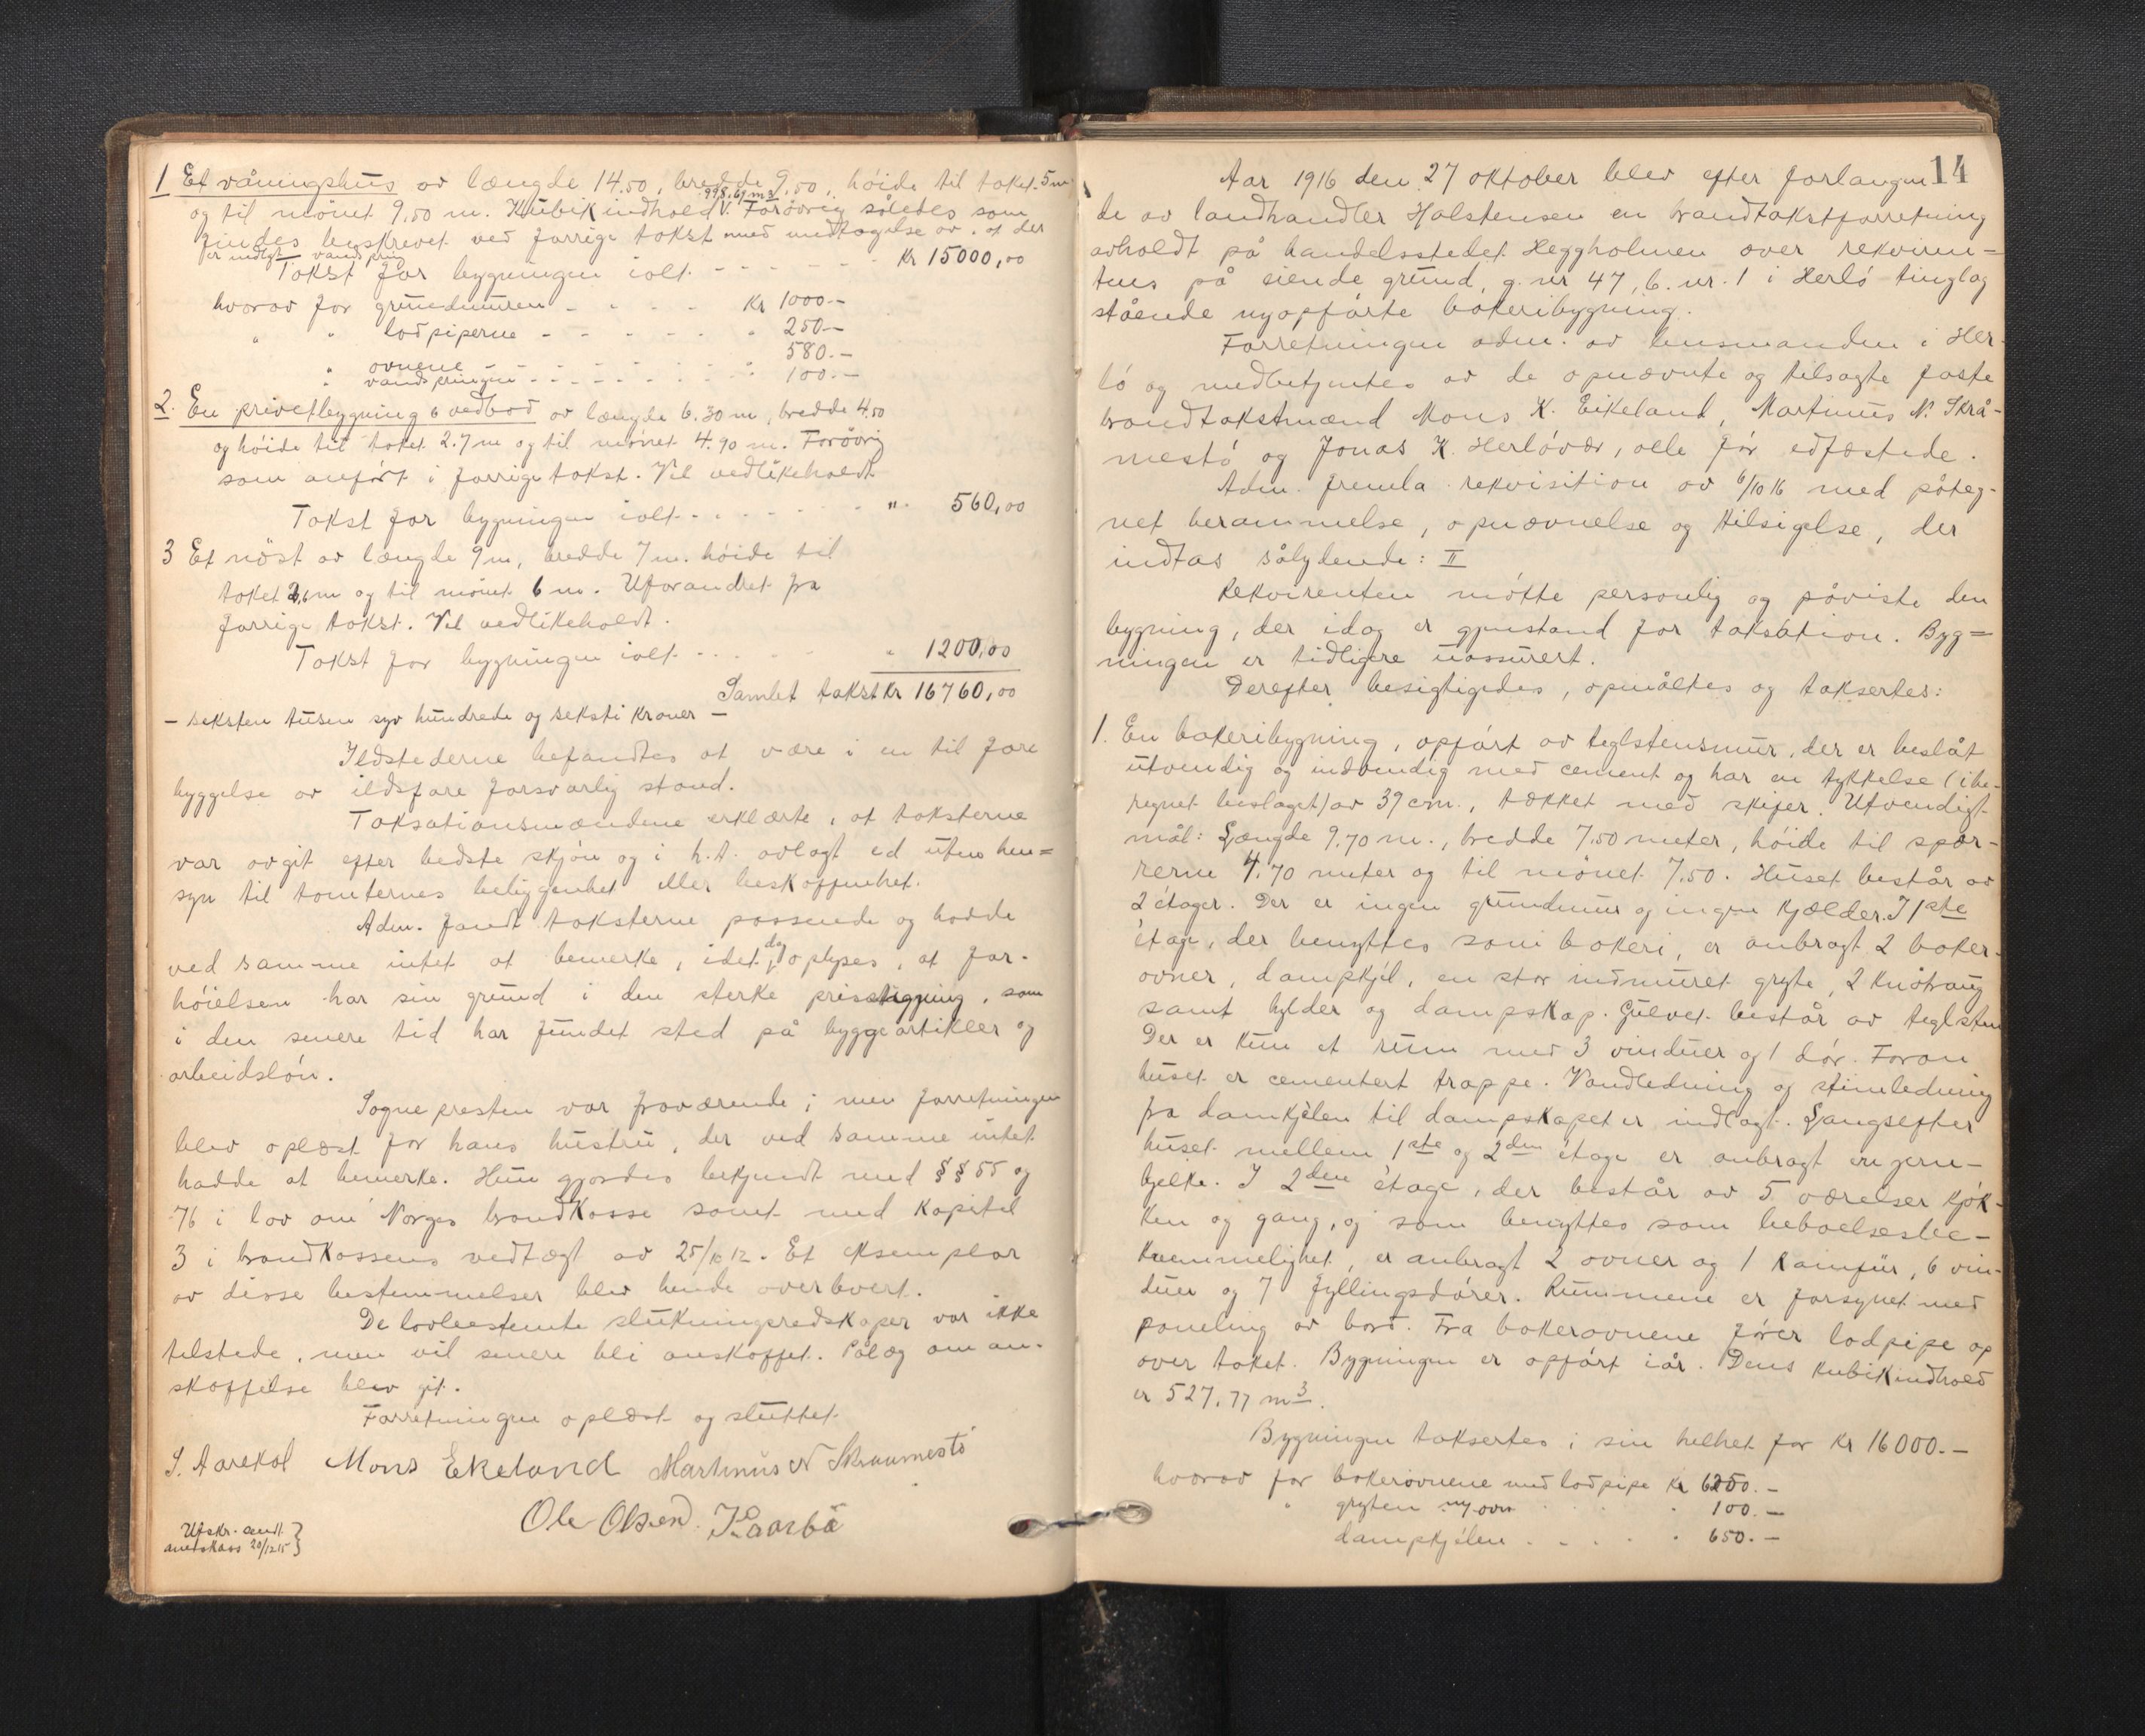 1 Et våningshus av længde 14.50, bredde 9.50, høide til taket 5 m
998.69 m3
og til mønet 9.50 m. Kubikindhold V. Forøvrig således som
findes beskrevet ved forrige takst med undtagelse av, at der
er indlagt vandspring
Takst for bygningen ialt - - - - - Kr 15000,00
hvorav for grundmuren - - - - Kr 1000.-
" " lodpiperne - - - - - " 250.-
" ovnene - - - - - - - 580.-
" vandspringen - - - - - - " 100.-
2. En privetbygning & vedbod av længde 6.30 m, bredde 4.50
og høide til taket 2.7 m og til mønet 4.90 m. Forøvrig
som anført i forrige takst. Vel vedlikeholdt
Takst for bygningen ialt - - - - - - " 560,00
3 Et nøst av længde 9 m, bredde 7 m. høide til
taket 2,6 m og til mønet 6 m. Uforandret fra
forrige takst. Vel vedlikeholdt.
Takst for bygningen ialt - - - - " 1200,00
Samlet takst Kr 16760,00
- seksten tusen syv hundrede og seksti kroner -
Ildstederne befandtes at være i en til fore
byggelse av ildsfare forsvarlig stand.
Taksationsmændene erklærte, at taksterne
var avgit efter bedste skjøn og i h.t. avlagt ed uten hen=
syn til tomternes beliggenhet eller beskaffenhet.
Adm. fandt taksterne passende og hadde
ved samme intet at bemerke, idet
dg
oplyses, at for-
høielsen har sin grund i den sterke prisstigning, som
i den senere tid har fundet sted på byggeartikler og
arbeidsløn.
Sognepresten var fraværende; men forretningen
blev oplæst for hans hustru, der ved samme intet
hadde at bemerke. Hun gjordes bekjendt med §§ 55 og
76 i lov om Norges brandkasse samt med kapitel
3 i brandkassens vedtægt av 25/10 12. Et eksemplar
av disse bestemmelser blev hende overlevert.
De lovbestemte slukningsredskaper var ikke
tilstede, men vil senere bli anskaffet. Pålæg om an-
skaffelse blev git.
Forretningen oplæst og sluttet
S. Aarekol Mons Ekeland Martinus N Skraamestø
Ole Olsen
Utskr. sendt
20/12 15
14
Aar 1916 den 27 oktober blev efter forlangen
de av landhandler Halstensen en brandtakstforretning
avholdt på handelsstedet Heggholmen over rekviren=
tens på eiende grund, g. nr 47, b. nr. 1 i Herlø tinglag
stående nyopførte bakeribygning.
Forretningen adm. av lensmanden i Her-
lø og medbetjentes av de opnævnte og tilsagte faste
brandtakstmænd Mons K. Eikeland, Martinus N. Skrå-
mestø og Jonas K. Herløvær, alle før edfæstede.
Adm. fremla rekvisition av 6/10 16 med påteg-
net berammelse, opnævnelse og tilsigelse, der
indtas sålydende: II
Rekvirenten møtte personlig og påviste den
bygning, der idag er gjenstand for taksation. Byg=
ningen er tidligere uassurert.
Derefter besigtigedes, opmåltes og taksertes:
1. En bakeribygning, opført av teglstensmur, der er beslåt
utvendig og indvendig med cement og har en tykkelse (ibe-
regnet beslaget) av 39 cm., tækket med skifer. Utvendigt
mål: Længde 9.70 m., bredde 7.50 meter, høide til spær-
rerne 4.70 meter og til mønet 7.50. Huset består av
2 etager. Der er ingen grundmur og ingen kjælder. I 1ste
etage, der benyttes som bakeri, er anbragt 2 baker-
ovner, dampkjel, en stor indmuret gryte, 2 knåtraug
samt hylder og dampskap. Gulvet består av teglsten
Der er kun et rum med 3 vinduer og 1 dør. Foran
huset er cementert trappe. Vandledning og stimledning
fra damkjelen til dampskapet er indlagt. Langsefter
huset mellem 1ste og 2den etage er anbragt en jern-
bjelke. I 2den etage, der består av 5 værelser kjøk-
ken og gang, og som benyttes som beboelseslee-
kvemmelighet, er anbragt 2 ovner og 1 komfür, 6 vin-
duer og 7 fyllingsdører. Rummene er forsynet med
paneling av bord. Fra bakerovnene fører lodpipe op
over taket. Bygningen er opført iår. Dens kubikindhold
er 527,77 m3.
Bygningen taksertes i sin helhet for Kr 16000.-
hvorav for bakerovnene med lodpipe Kr 6250.-
" gryten m. ovn " 100.-
dampkjelen - - - - " 650.-